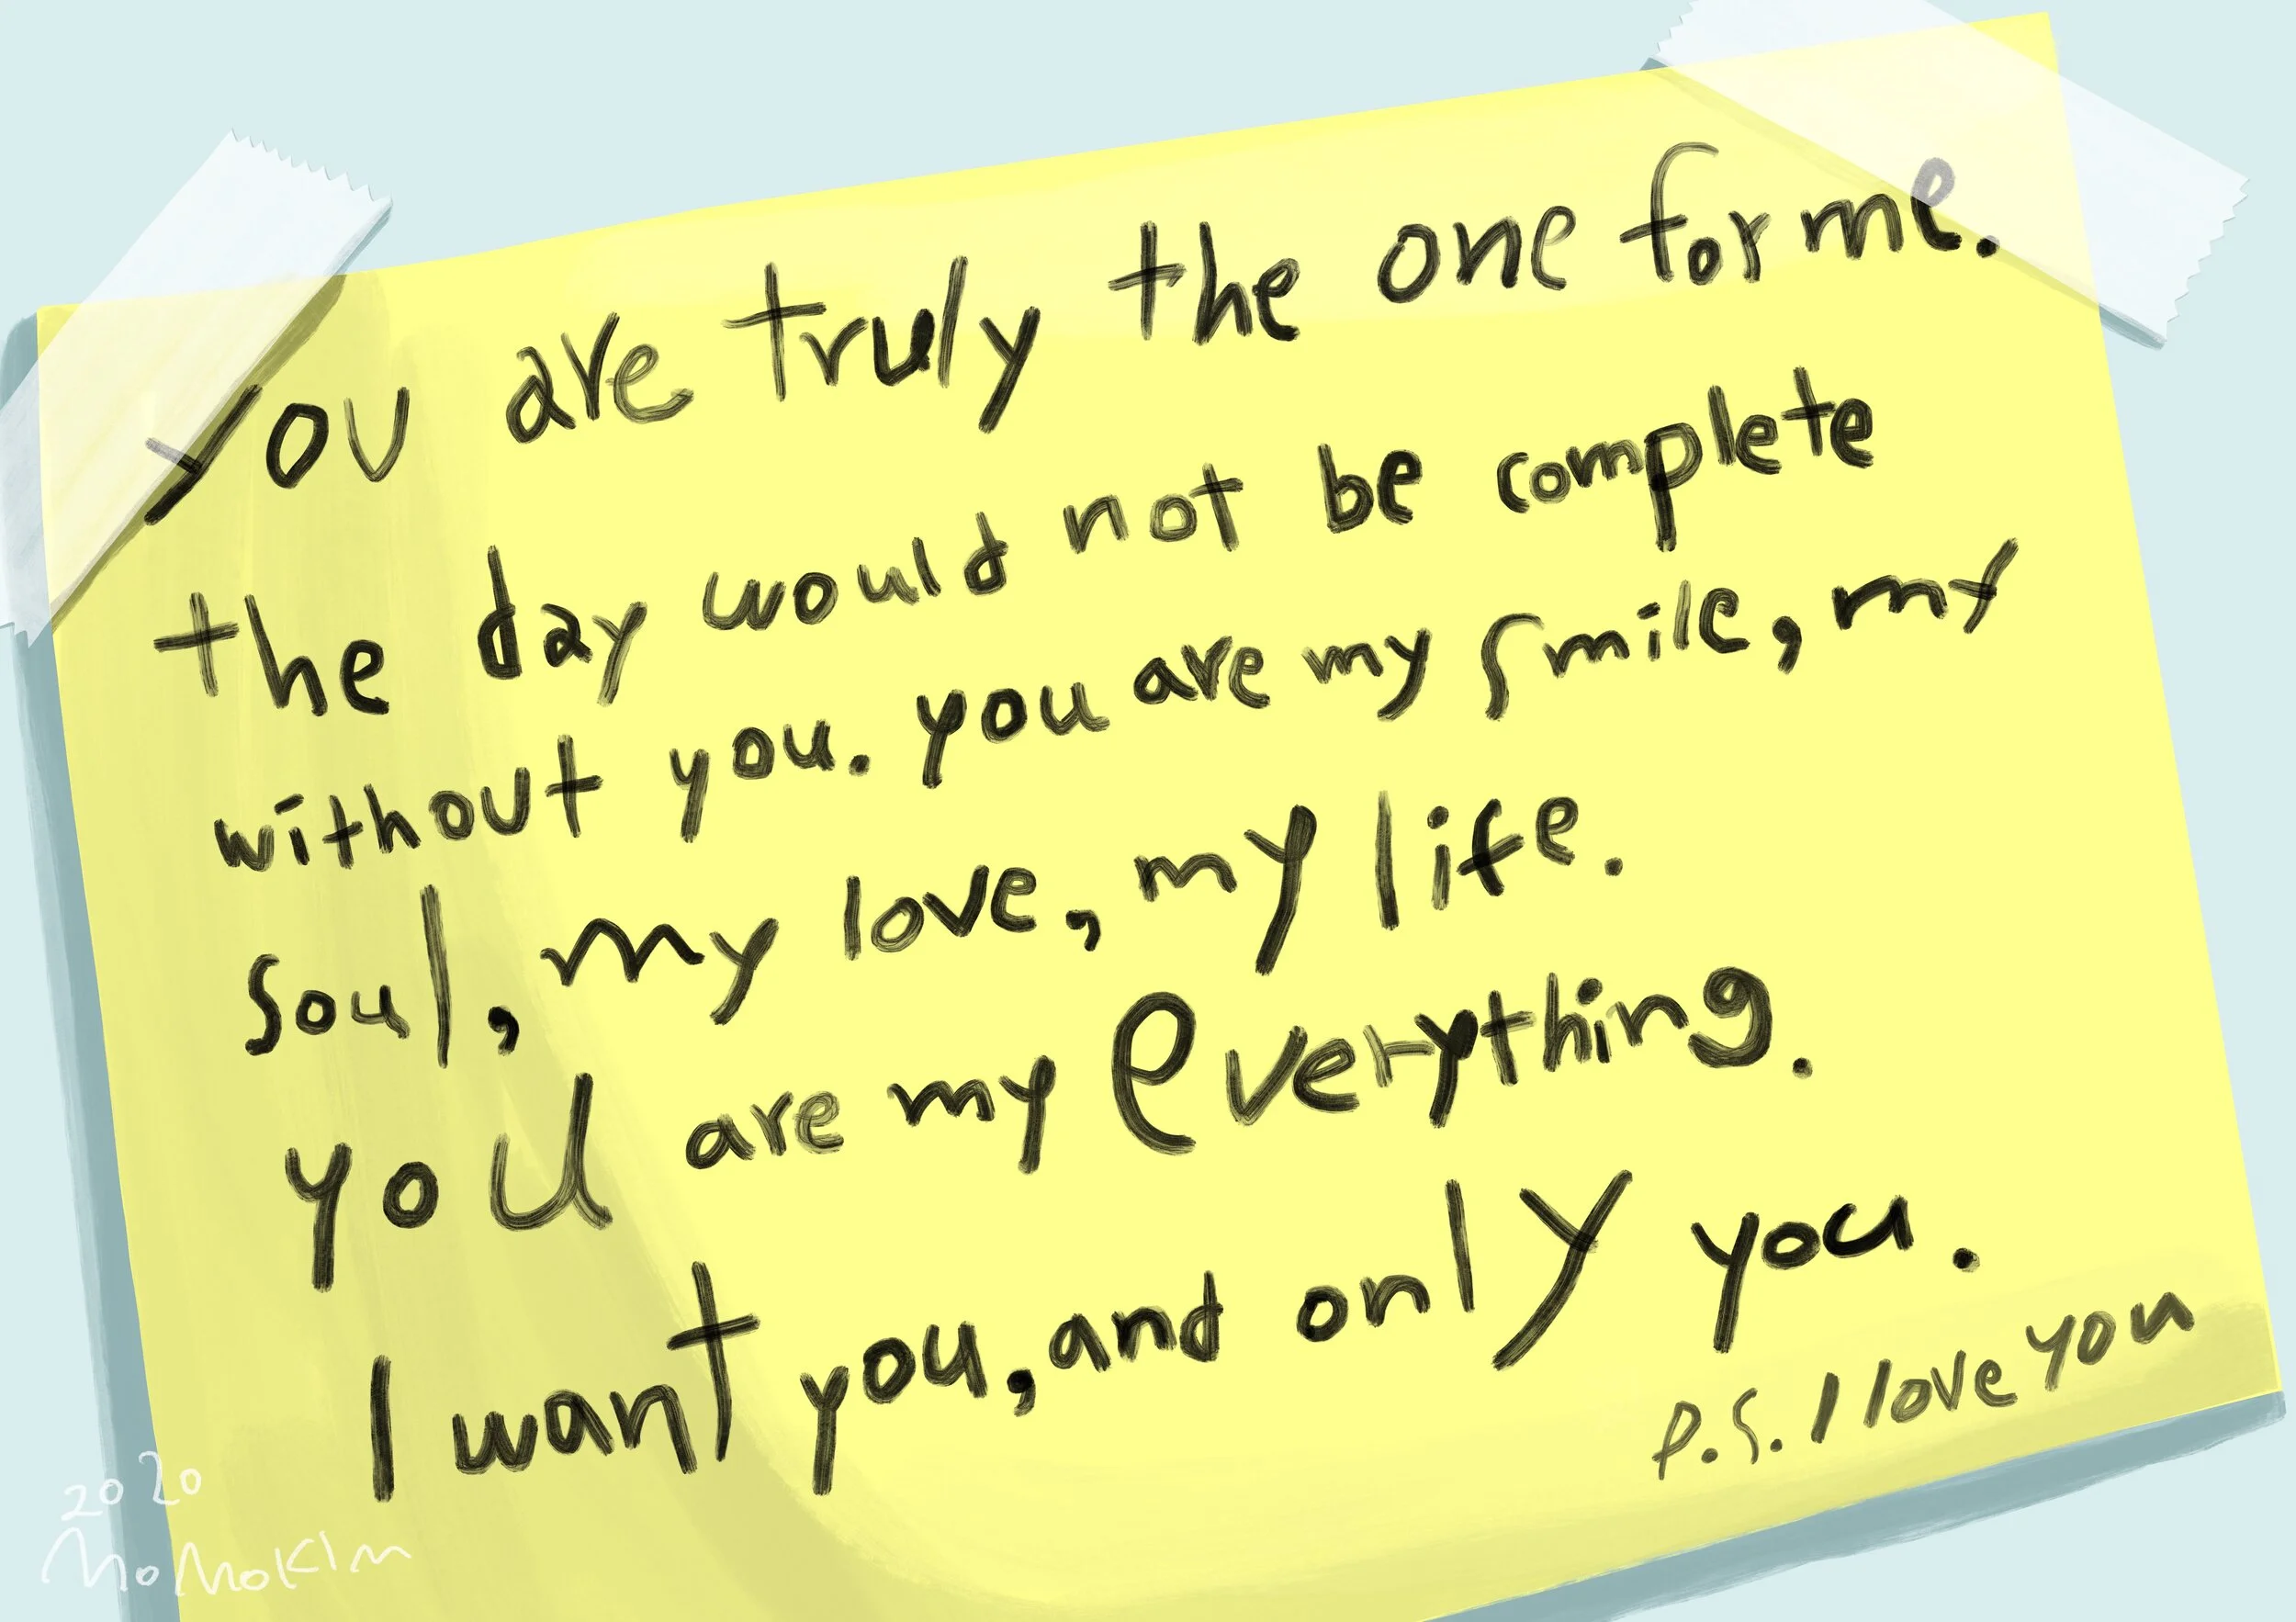 You are truly the one for me.
the day would not be complete
without you. you are my smile, my
soul, my love, my life.
you are my everything.
I want you, and only you.
P.S. I love you
2020
MoMoKIM